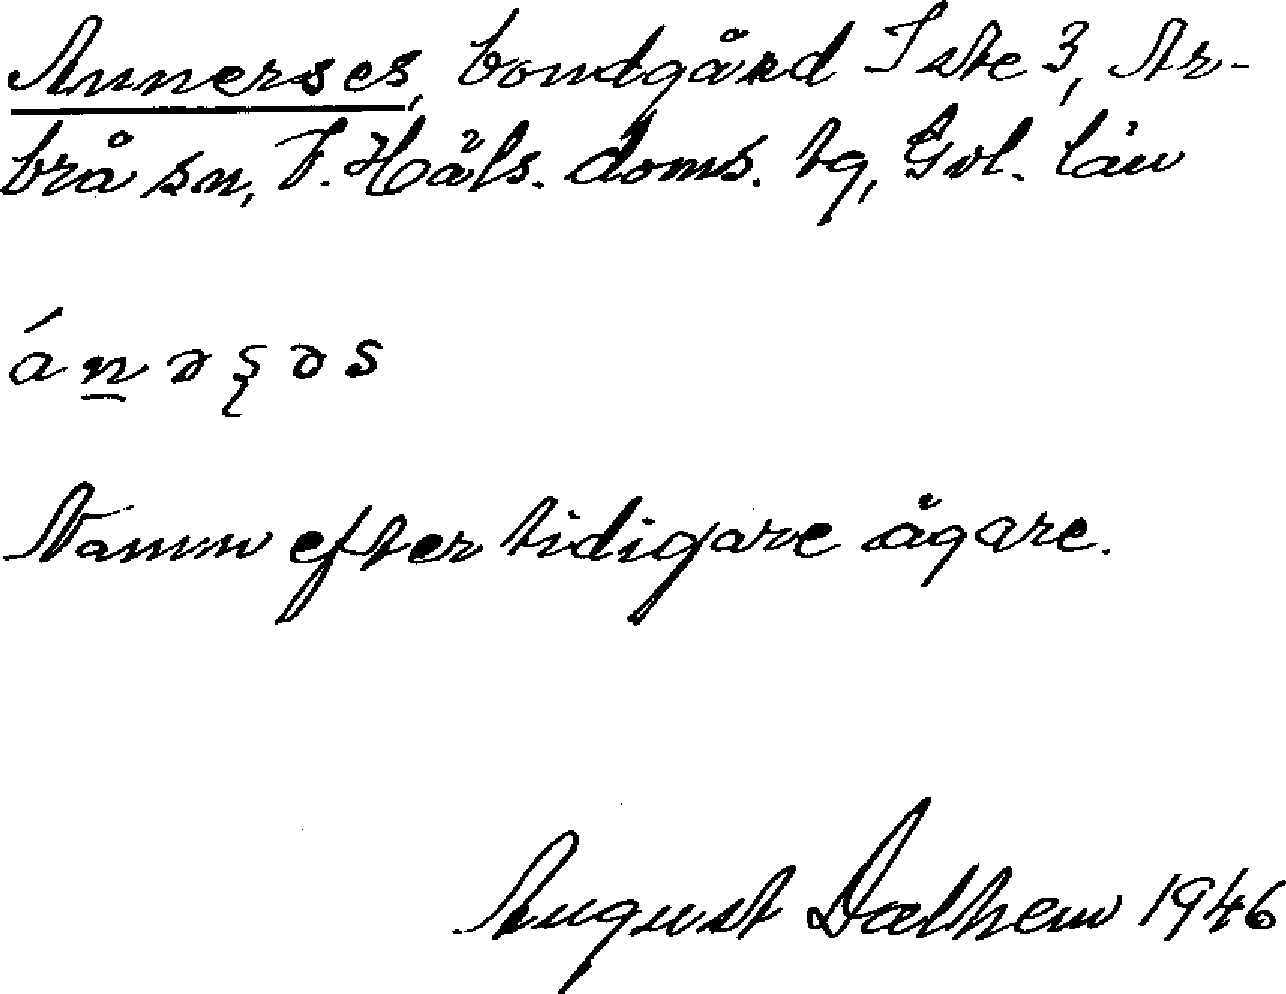 Annerses, bondgård Iste 3, Ar-
brå sn, V. Häls. doms. tg, Gvl. län
án̲əşəs
Namn efter tidigare ägare.
August Dalhem 1946